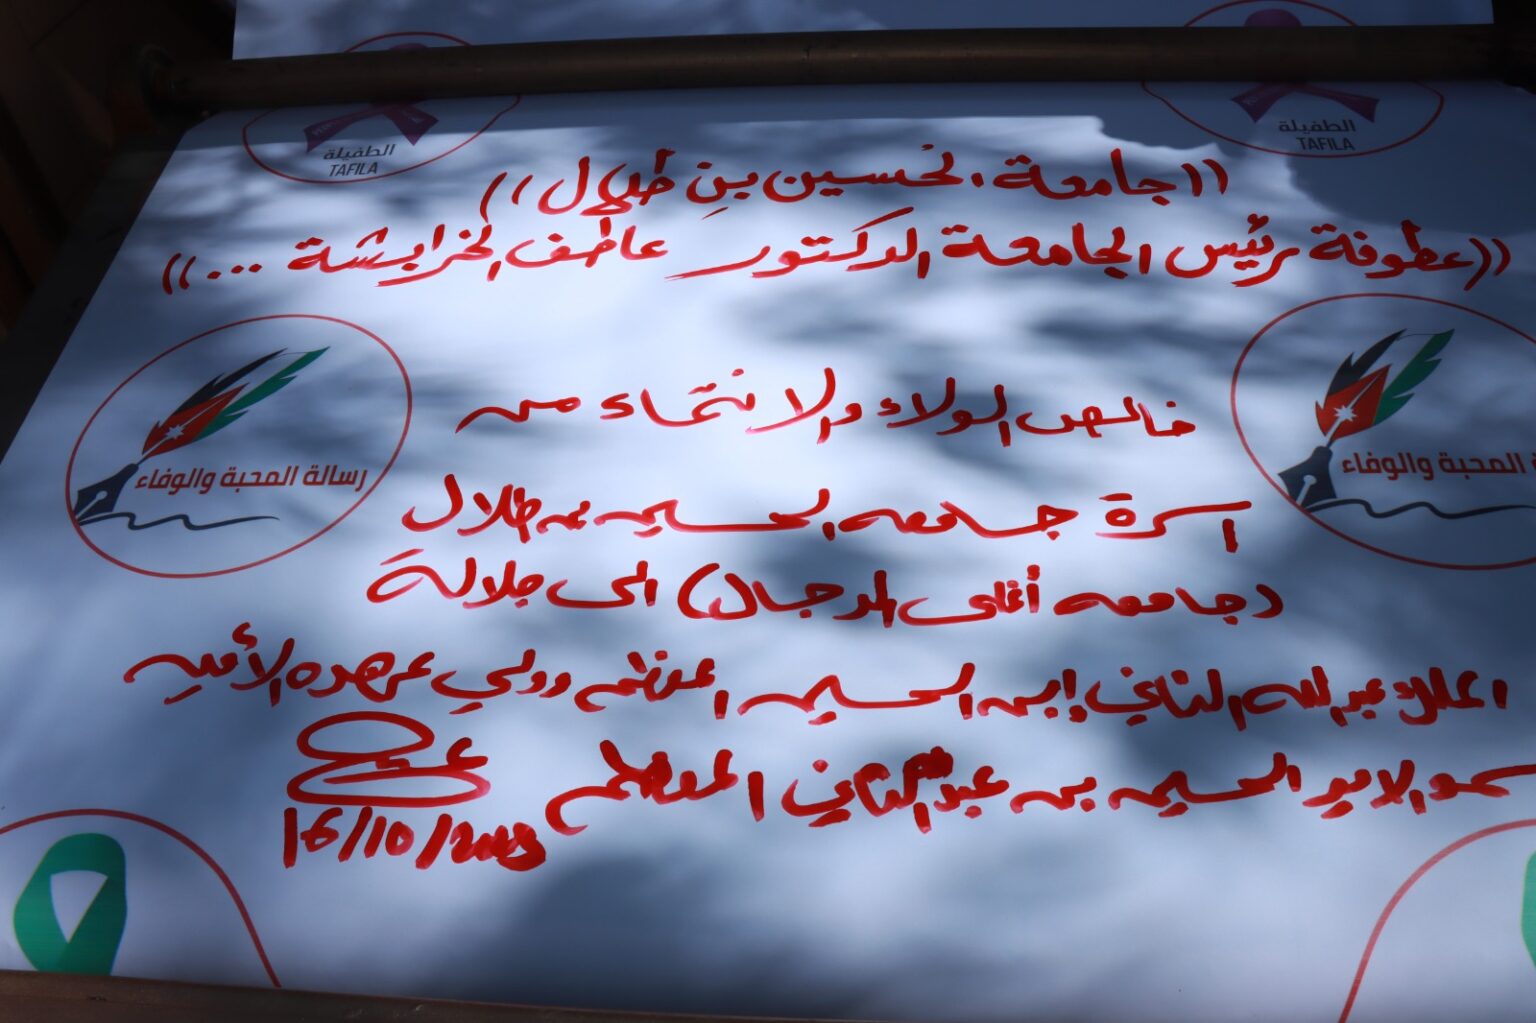 الطفيلة
TAFILA
الطفيلة
TAFILA
((جامعة الحسين بن طلال))
((عطوفة رئيس الجامعة الدكتور عاطف الخرابشة ...))
رسالة المحبة والوفاء
المحبة والوفاء
خالص الولاء والانتماء من
اسرة جامعه الحسين بن طلال
(جامعه أغلى الرجال) الى جلالة
الملك عبدالله الثاني إبن الحسين المعظم وولي عهده الأمين
سمو الامير الحسين بن عبدالله الثاني المعظم
16/10/